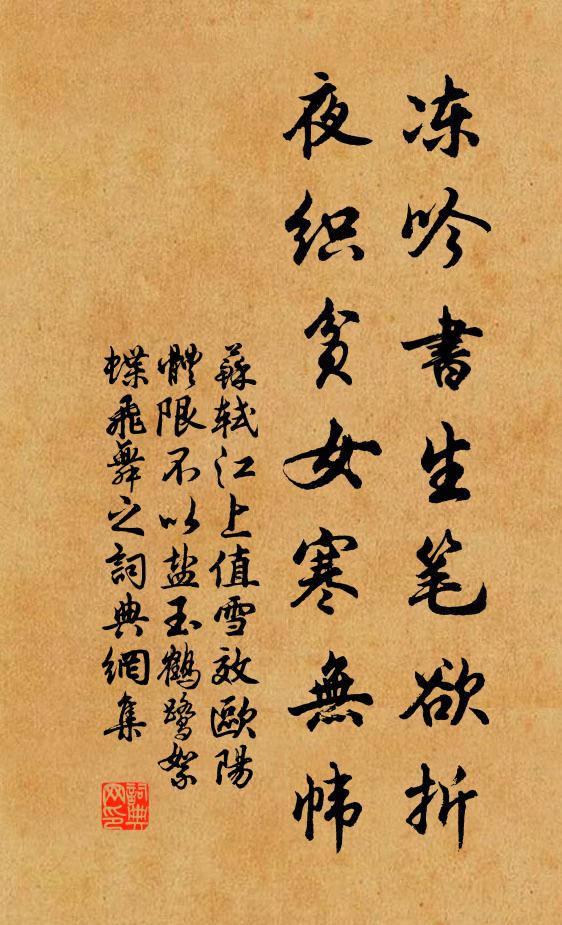 冻吟书生笔欲折
夜织贫女寒無帏
蘇轼江上值雪效歐陽
體限不以盐玉鶴鹭絮
蝶飛舞之詞典網集
詞典网印